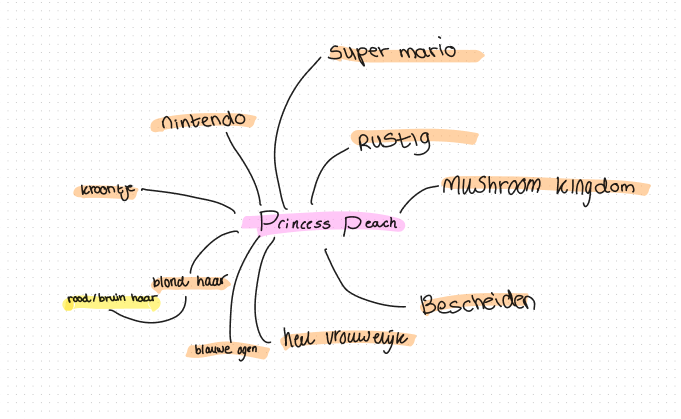 super mario
nintendo
Rustig
kroontje
Mushroom kingdom
Princess Peach
blond haar
rood/bruin haar
Bescheiden
heel vrouwelijk
blauwe ogen